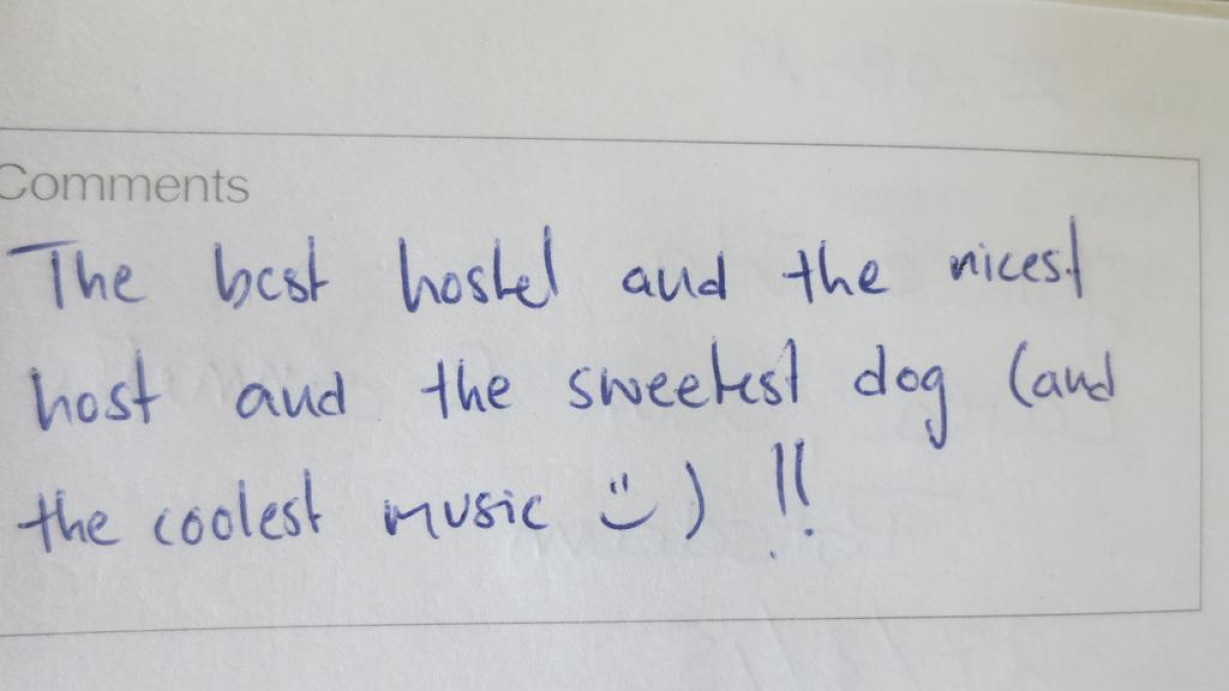 Comments
The best hostel and the nicest
host and the sweetest dog (and
the coolest music ) !!